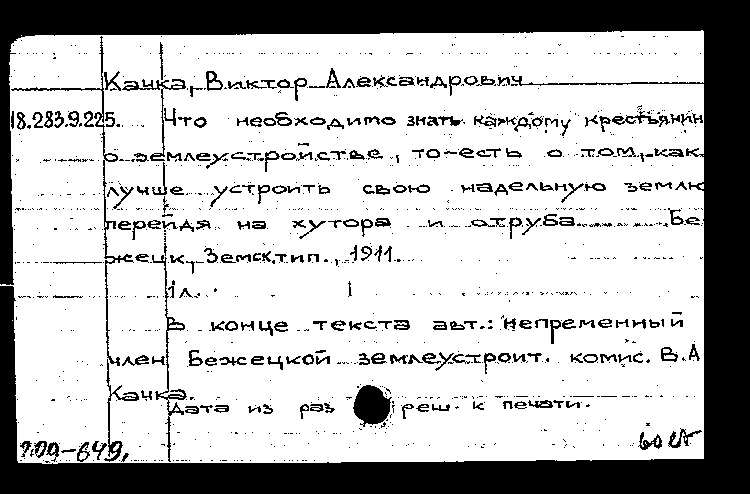 Качка, Виктор Александрович
18.283.9.225. Что необходимо знать каждому крестьянин
о землеустройстве, то-есть о том, как
лучше устроить свою надельную землю
перейдя на хутора и отруба. Бе
жецк, Земск.тип., 1911.
1л.
В конце текста авт.: непременный
член Бежецкой землеустроит. комис. В.А
Качка.
Дата из раз реш. к печати.
709-649.